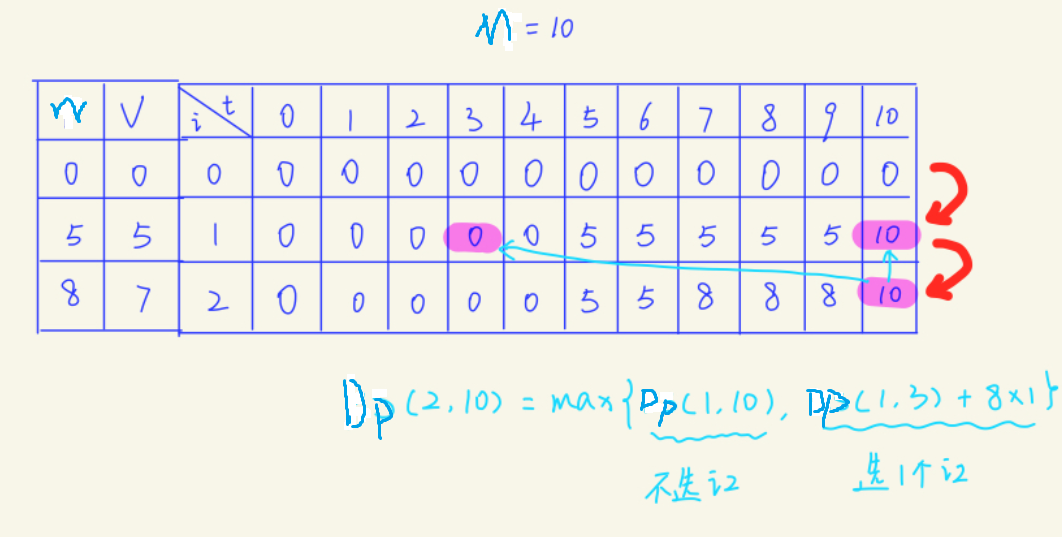 M = 10
W V i t 0 1 2 3 4 5 6 7 8 9 10
0 0 0 0 0 0 0 0 0 0 0 0 0 0 0
5 5 1 0 0 0 0 0 5 5 5 5 5 10
8 7 2 0 0 0 0 0 5 5 8 8 8 10
Dp(2,10) = max{Dp(1,10), Dp(1,3) + 8×1}
不选i2 选1个i2